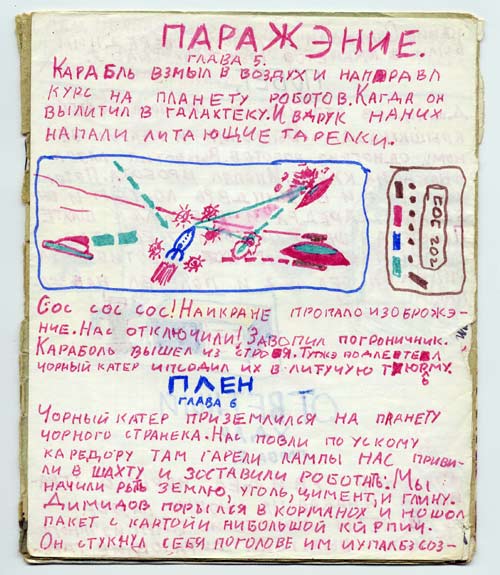 ПАРАЖЭНИЕ.
ГЛАВА 5.
КАРАБЛЬ ВЗМЫЛ В ВОЗДУХ И НАПРАВЛ
КУРС НА ПЛАНЕТУ РОБОТОВ. КАГДА ОН
ВЫЛИТИЛ В ГАЛАХТЕКУ. И ВДРУК НАНИХ
НАПАЛИ ЛИТАЮЩИЕ ТАРЕЛКИ.
СОС СОС СОС! НАИКРАНЕ ПРОПАЛО ИЗОБРОЖЭ-
НИЕ. НАС ОТКЛЮЧИЛИ! ЗАВОПИЛ ПОГРОНИЧНИК.
КАРАБОЛЬ ВЫШЕЛ ИЗ СТРОЯ.
ЧОРНЫЙ КАТЕР ИПСОДИЛ ИХ В ЛИТУЧУЮ ТЮРМУ.
ПЛЕН
ГЛАВА 6
ЧОРНЫЙ КАТЕР ПРИЗЕМЛИЛСЯ НА ПЛАНЕТУ
ЧОРНОГО СТРАНЕКА. НАС ПОВЛИ ПО УСКОМУ
КАРЕДОРУ ТАМ ГАРЕЛИ ЛАМПЫ НАС ПРИВИ-
ЛИ В ШАХТУ И ЗОСТАВИЛИ РОБОТАТЬ. МЫ
НАЧИЛИ РЫТЬ ЗЕМЛЮ, УГОЛЬ, ЦИМЕНТ, И ГЛИНУ.
ДИМИДОВ ПОРЫЛСЯ В КОРМАНОХ И НОШОЛ
ПАКЕТ С КАРТОЙИ НИБОЛЬШОЙ КИРПИЧ.
ОН СТУКНУЛ СЕБЯ ПОГОЛОВЕ ИМ ИУПАЛБЗСОЗ-